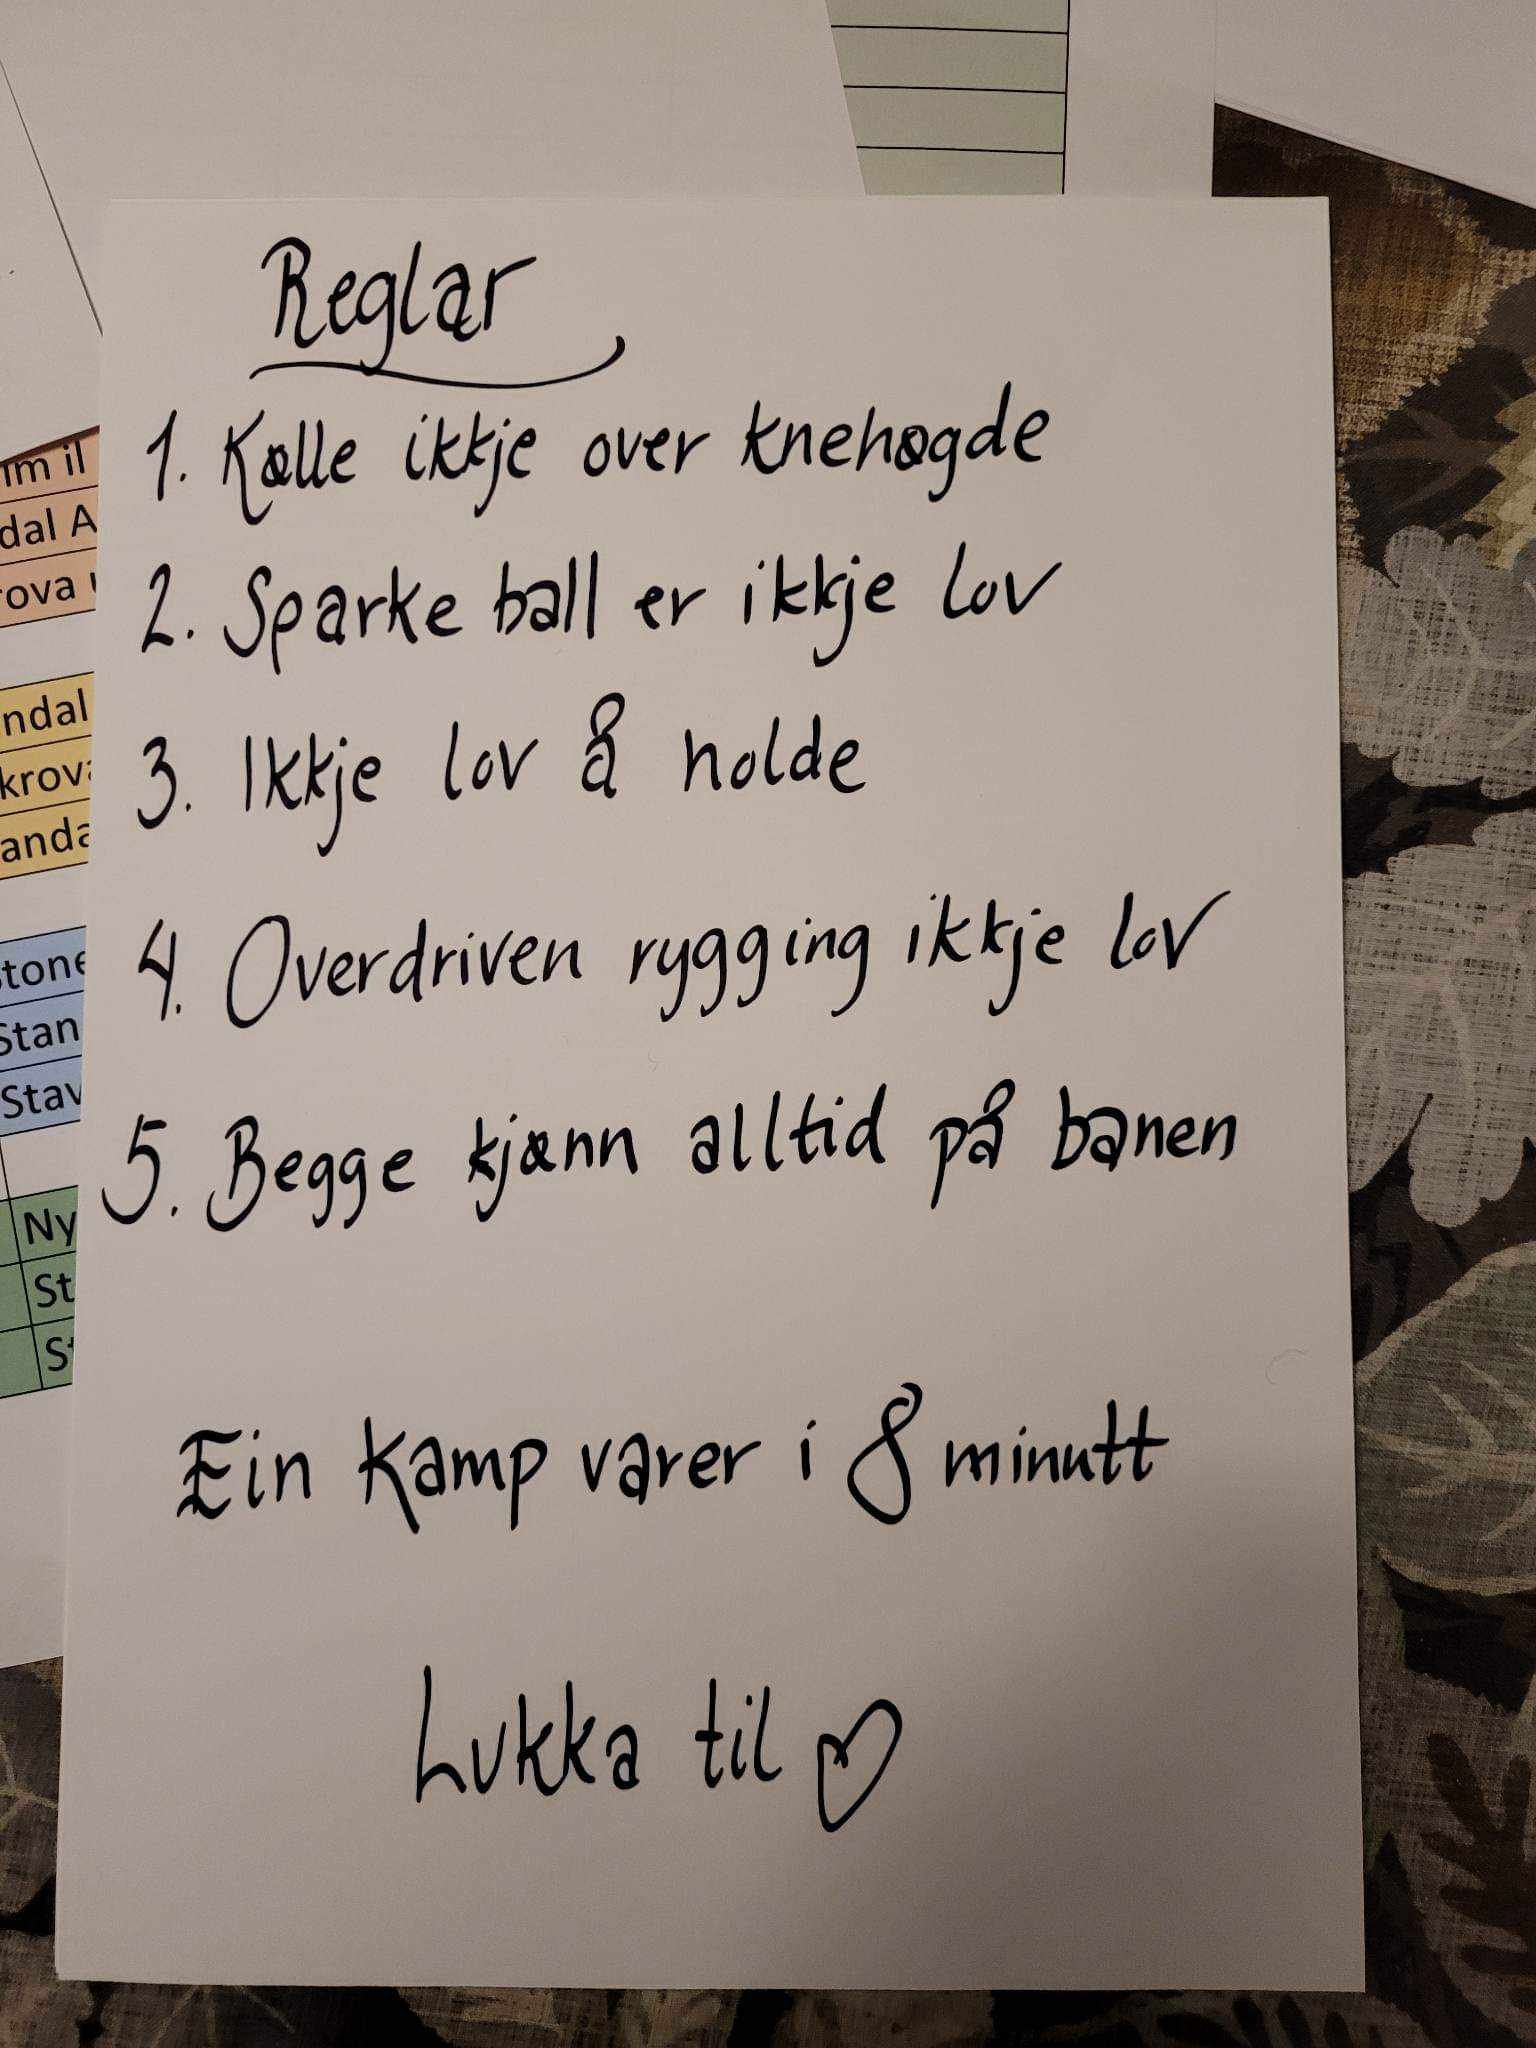 Reglar
1. Kølle ikkje over knehøgde
2. Sparke ball er ikkje lov
3. Ikkje lov å holde
4. Overdriven rygging ikkje lov
5. Begge kjønn alltid på banen
Ein kamp varer i 8 minutt
Lukka til
im il
dal A
ova
ndal
krova
anda
tone
Stan
Stav
Ny
St
St